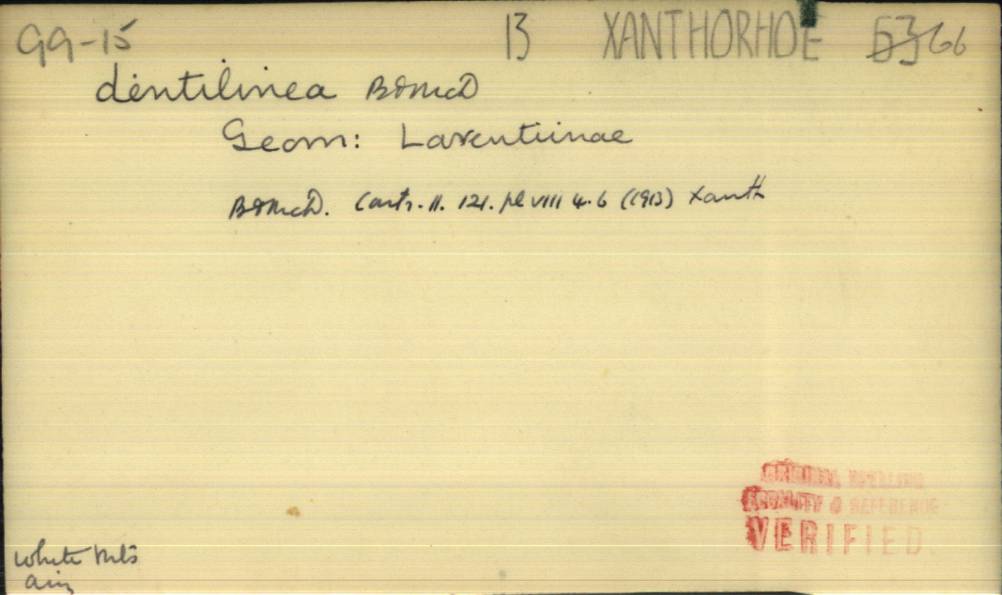 GG-15 13 XANTHORHOE 53 66
dentilinea B&McD
Geom: Larentiinae
B&McD. Contr. II. 121. pl VIII 4.6 (1913) Xanth
ORIGINAL SPELLING
LOCALITY & REFERENCE
VERIFIED.
White Mts
Ariz